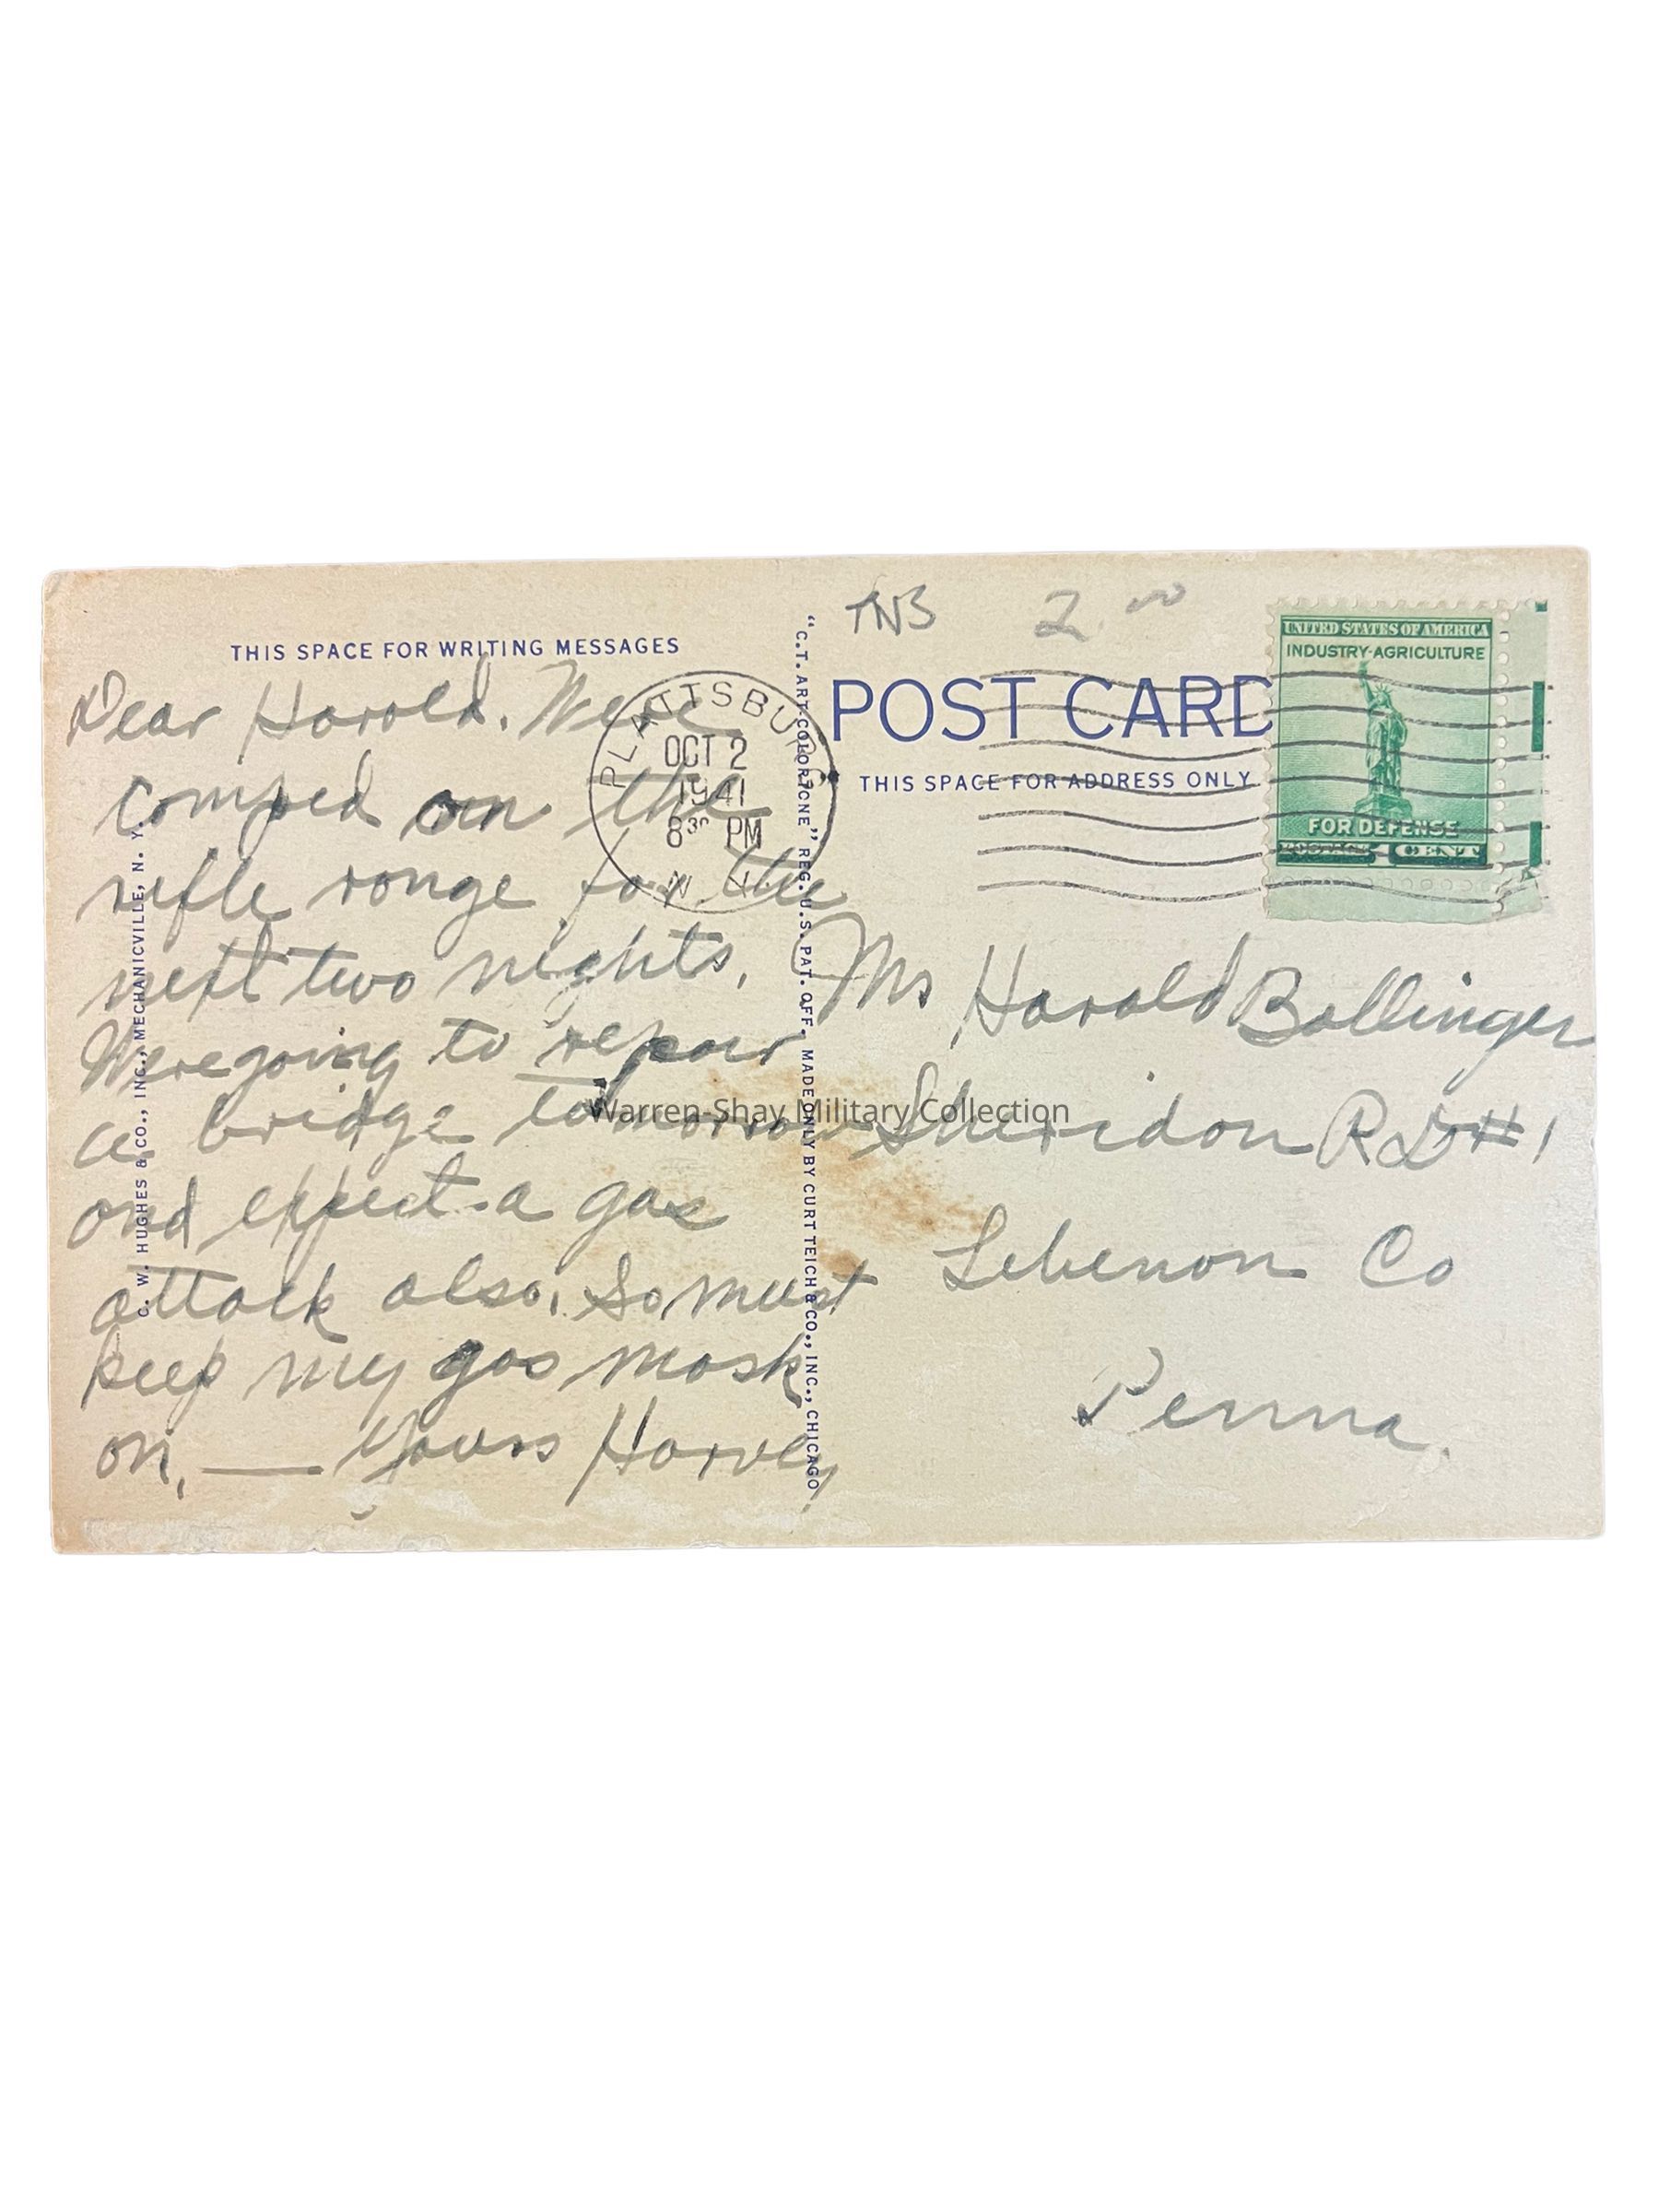 TNB 2.00
THIS SPACE FOR WRITING MESSAGES
Dear Harold. Were
camped on the
rifle range for the
next two nights.
Were going to repair
a bridge tomorrow
and expect a gas
attack also. So must
keep my gas mask
on. — Yours Harvey
C. W. HUGHES & CO., INC., MECHANICVILLE, N. Y.
PLATTSBURG
OCT 2
1941
8 30 PM
N.Y.
"C.T. ART-COLORTONE" REG. U.S. PAT. OFF. MADE ONLY BY CURT TEICH & CO., INC., CHICAGO
POST CARD
THIS SPACE FOR ADDRESS ONLY
UNITED STATES OF AMERICA
INDUSTRY-AGRICULTURE
FOR DEFENSE
POSTAGE 1 CENT
Mr Harold Bollinger
Sheridan R D #1
Lebenon Co
Penna.
Warren-Shay Military Collection